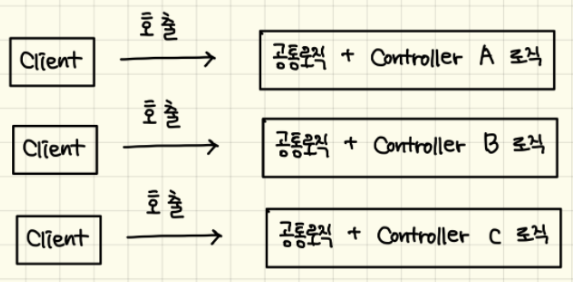 호출
Client
공통로직 + Controller A 로직
호출
Client
공통로직 + Controller B 로직
호출
Client
공통로직 + Controller C 로직